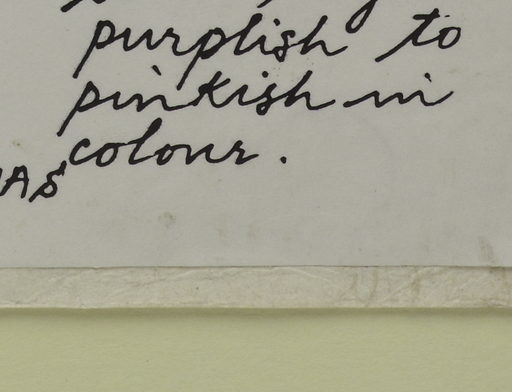 purplish to
pinkish in
colour.
AS